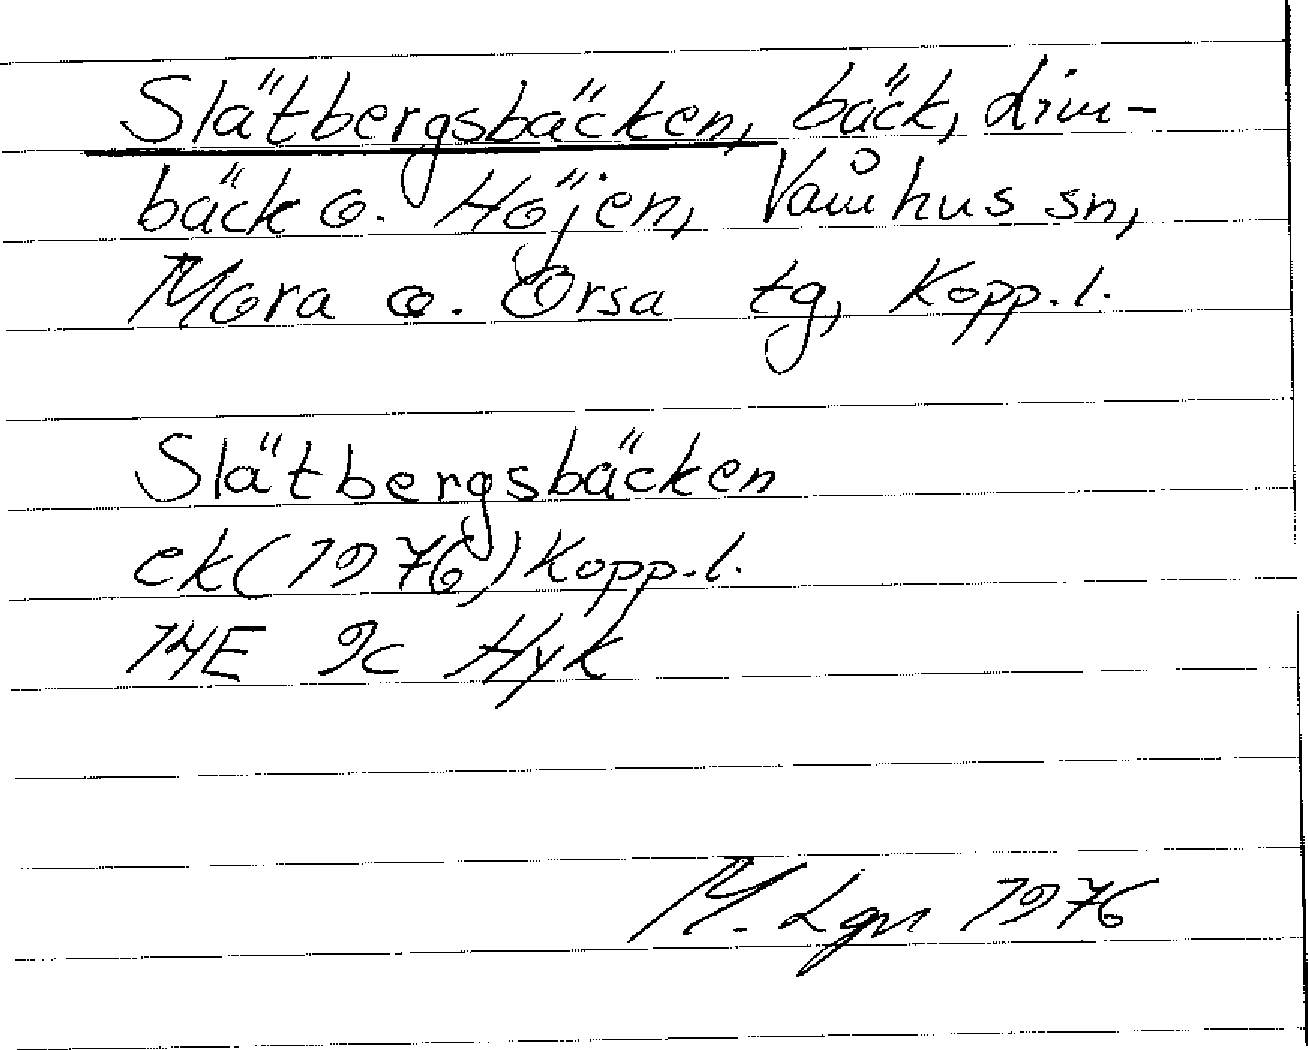 Slätbergsbäcken, bäck, Lim-
bäck o. Höjen, Våmhus sn,
Mora o. Orsa tg, Kopp.l.
Slätbergsbäcken
ek(1976)Kopp.l.
14E 9c Hyk
M. Lgn 1976